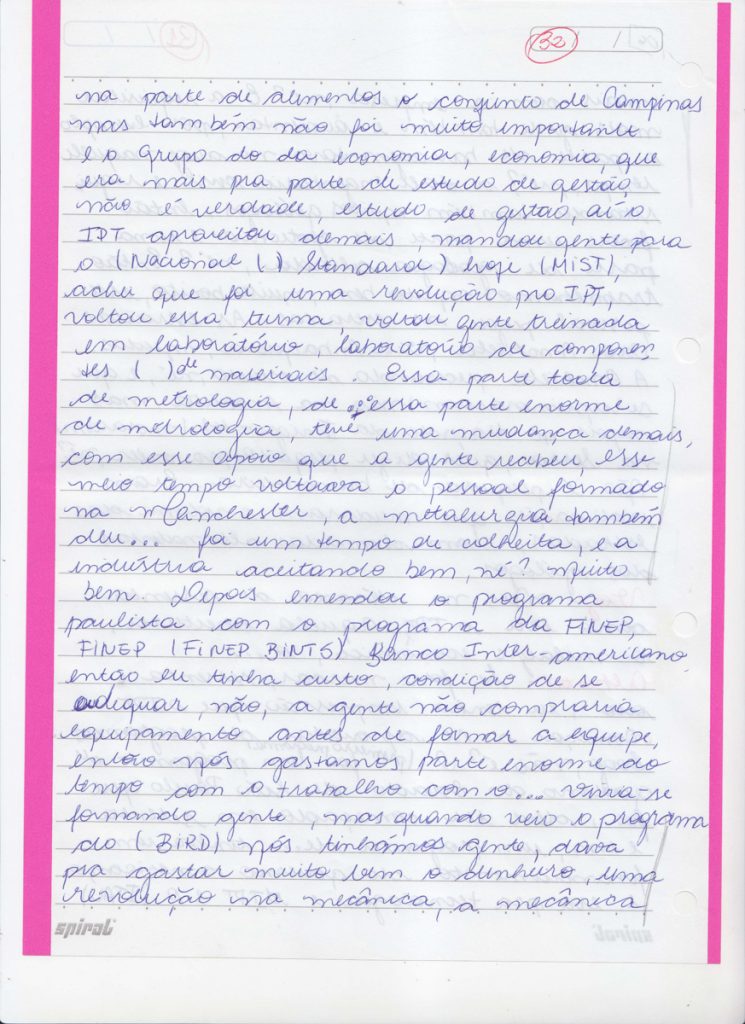 32
na parte de alimentos o conjunto de Campinas
mas também não foi muito importante
e o Grupo do da economia, economia, que
era mais pra parte de estudo de gestão,
não é verdade, estudo de gestão, aí o
IPT aproveitou demais mandou gente para
o (Nacional ( ) Standard) hoje (MiST),
acho que foi uma revolução pro IPT,
voltou essa turma, voltou gente treinada
em laboratório, laboratório de componen
tes ( ) de materiais. Essa parte toda
de metrologia, de... essa parte enorme
de metrologia, teve uma mudança demais,
com esse apoio que a gente recebeu, esse
meio tempo voltava o pessoal formado
na Manchester, a metalurgia também
deu... foi um tempo de colheita, e a
indústria aceitando bem, né? muito
bem. Depois emendou o programa
paulista com o programa da FINEP,
FINEP (FiNEP BiNTS) Banco Inter-americano,
então eu tinha custo, condição de se
adequar, não, a gente não compraria
equipamento antes de formar a equipe,
então nós gastamos parte enorme do
tempo com o trabalho com o... vinha-se
formando gente, mas quando veio o programa
do (BiRD) nós tínhamos gente, dava
pra gastar muito bem o dinheiro, uma
revolução na mecânica, a mecânica
spiral